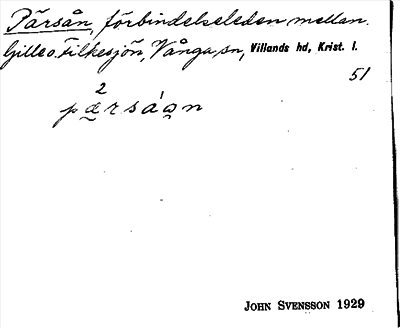 Pärsån, förbindelseleden mellan
Gille o. Filkesjön, Vånga sn, Villands hd, Krist. l.
51
2
pærsáan
JOHN SVENSSON 1929